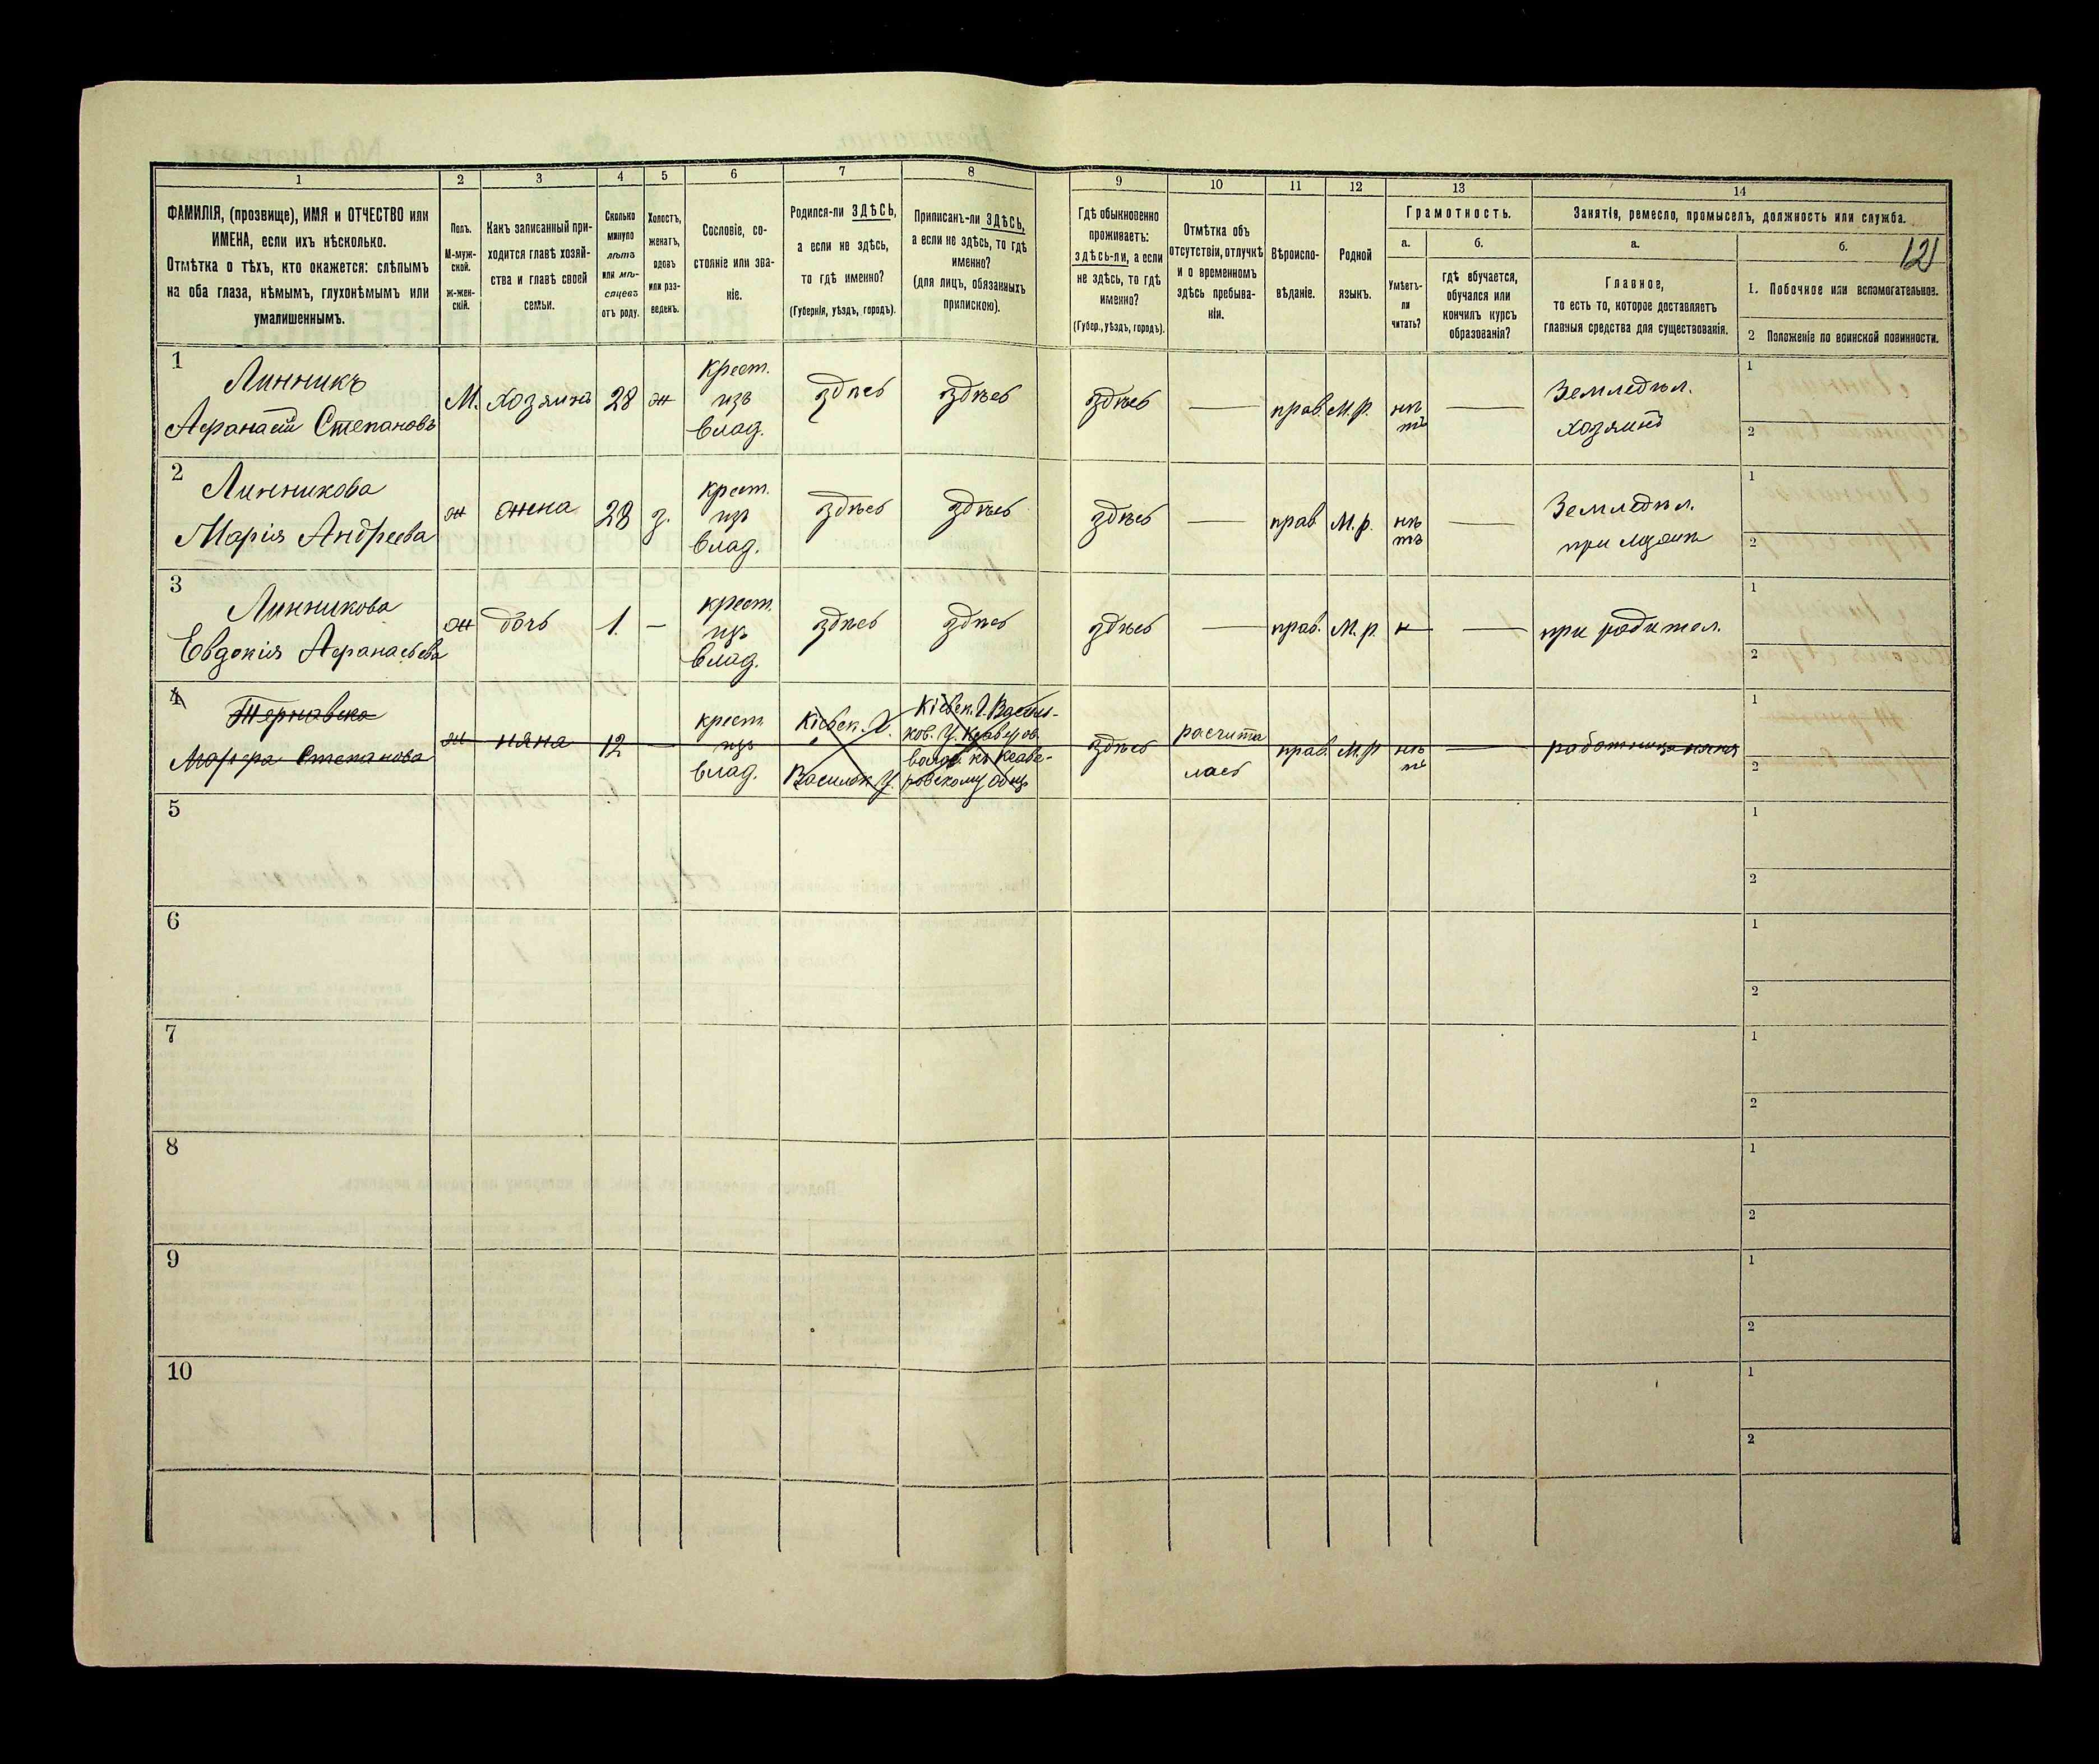 1 2 3 4 5 6 7 8 9 10 11 12 13 14
ФАМИЛІЯ, (прозвище), ИМЯ и ОТЧЕСТВО или
ИМЕНА, если ихъ нѣсколько.
Отмѣтка о тѣхъ, кто окажется: слѣпымъ
на оба глаза, нѣмымъ, глухонѣмымъ или
умалишеннымъ.
Полъ.
М-муж-
ской.
ж-жен-
скій.
Какъ записанный при-
ходится главѣ хозяй-
ства и главѣ своей
семьи.
Сколько
минуло
лѣтъ
или мѣ-
сяцевъ
отъ роду.
Холостъ,
женатъ,
вдовъ
или раз-
веденъ.
Сословіе, со-
стояніе или зва-
ніе.
Родился-ли ЗДѢСЬ,
а если не здѣсь,
то гдѣ именно?
(Губернія, уѣздъ, городъ).
Приписанъ-ли ЗДѢСЬ,
а если не здѣсь, то гдѣ
именно?
(для лицъ, обязанныхъ
припискою).
Гдѣ обыкновенно
проживаетъ:
здѣсь-ли, а если
не здѣсь, то гдѣ
именно?
(Губер., уѣздъ, городъ).
Отмѣтка объ
отсутствіи, отлучкѣ
и о временномъ
здѣсь пребыва-
ніи.
Вѣроиспо-
вѣданіе.
Родной
языкъ.
Грамотность.
а.
Умѣетъ-
ли
читать?
б.
гдѣ обучается,
обучался или
кончилъ курсъ
образованія?
Занятія, ремесло, промыселъ, должность или служба.
а.
Главное,
то есть то, которое доставляетъ
главныя средства для существованія.
б.
121
1. Побочное или вспомогательное.
2 Положеніе по воинской повинности.
1
Линникъ
Афанасій Степановъ
М. хозяинъ 28 ж
крест.
изъ
влад.
здѣсь здѣсь здѣсь — прав. М.р.
нѣ
тъ
—
Земледѣл.
хозяинъ
1
2
2
Линникова
Марія Андреева
ж жена 28 з.
крест.
изъ
влад.
здѣсь здѣсь здѣсь — прав М.р.
нѣ
тъ
—
Земледѣл.
при
1
2
3
Линникова
Евдокія Афанасьева
ж дочь 1. —
крест.
изъ
влад.
здѣсь здѣсь здѣсь — прав. М.р. н —
при родител.
1
2
4
Степанова
ж няня 12 —
крест
изъ
влад.
Кіевск. Г.
Васильк У.
Кіевск. Г. Василь-
ков. У.
здѣсь
расчита
лась
прав. М.р
нѣ
тъ
—
работница няня
1
2
5
1
2
6
1
2
7
1
2
8
1
2
9
1
2
10
1
2